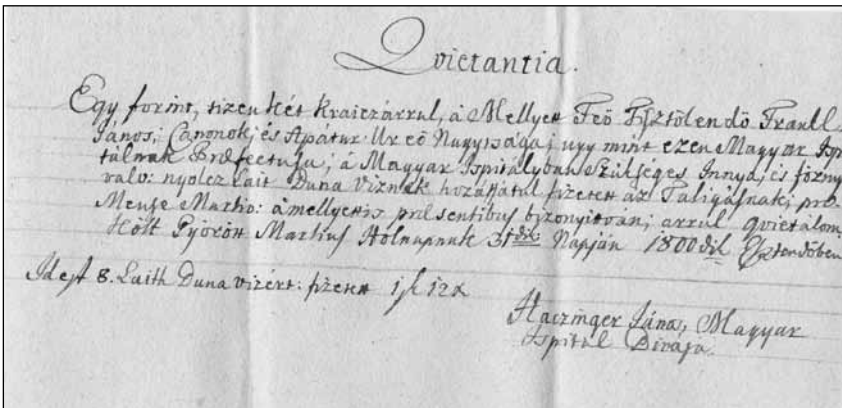 Qvietantia.
Egy forint, tizenkét Kraiczárrul, à Mellyet Feö Tisztölendö Trautl
János; Canonok, és Apátur Ur eö Nagysága; ugy mint ezen Magyar Ispi-
tálnak Præfectusa; à Magyar Ispitályban Szükséges Innya, és fözny
valo: nyolcz Lait Duna Viznek hozásátul fizetett az Taligásnak; pro
Mense Martio: à mellyettis præsentibus bizonyitván; arrul qvietálom.
Költ Györött Martius Holnapnak 31dik Napján 1800dik Esztendöben
Idest 8. Laith Duna vizért: fizetett 1 f 12 x
Haczinger János, Magyar
Ispitál Biraja.